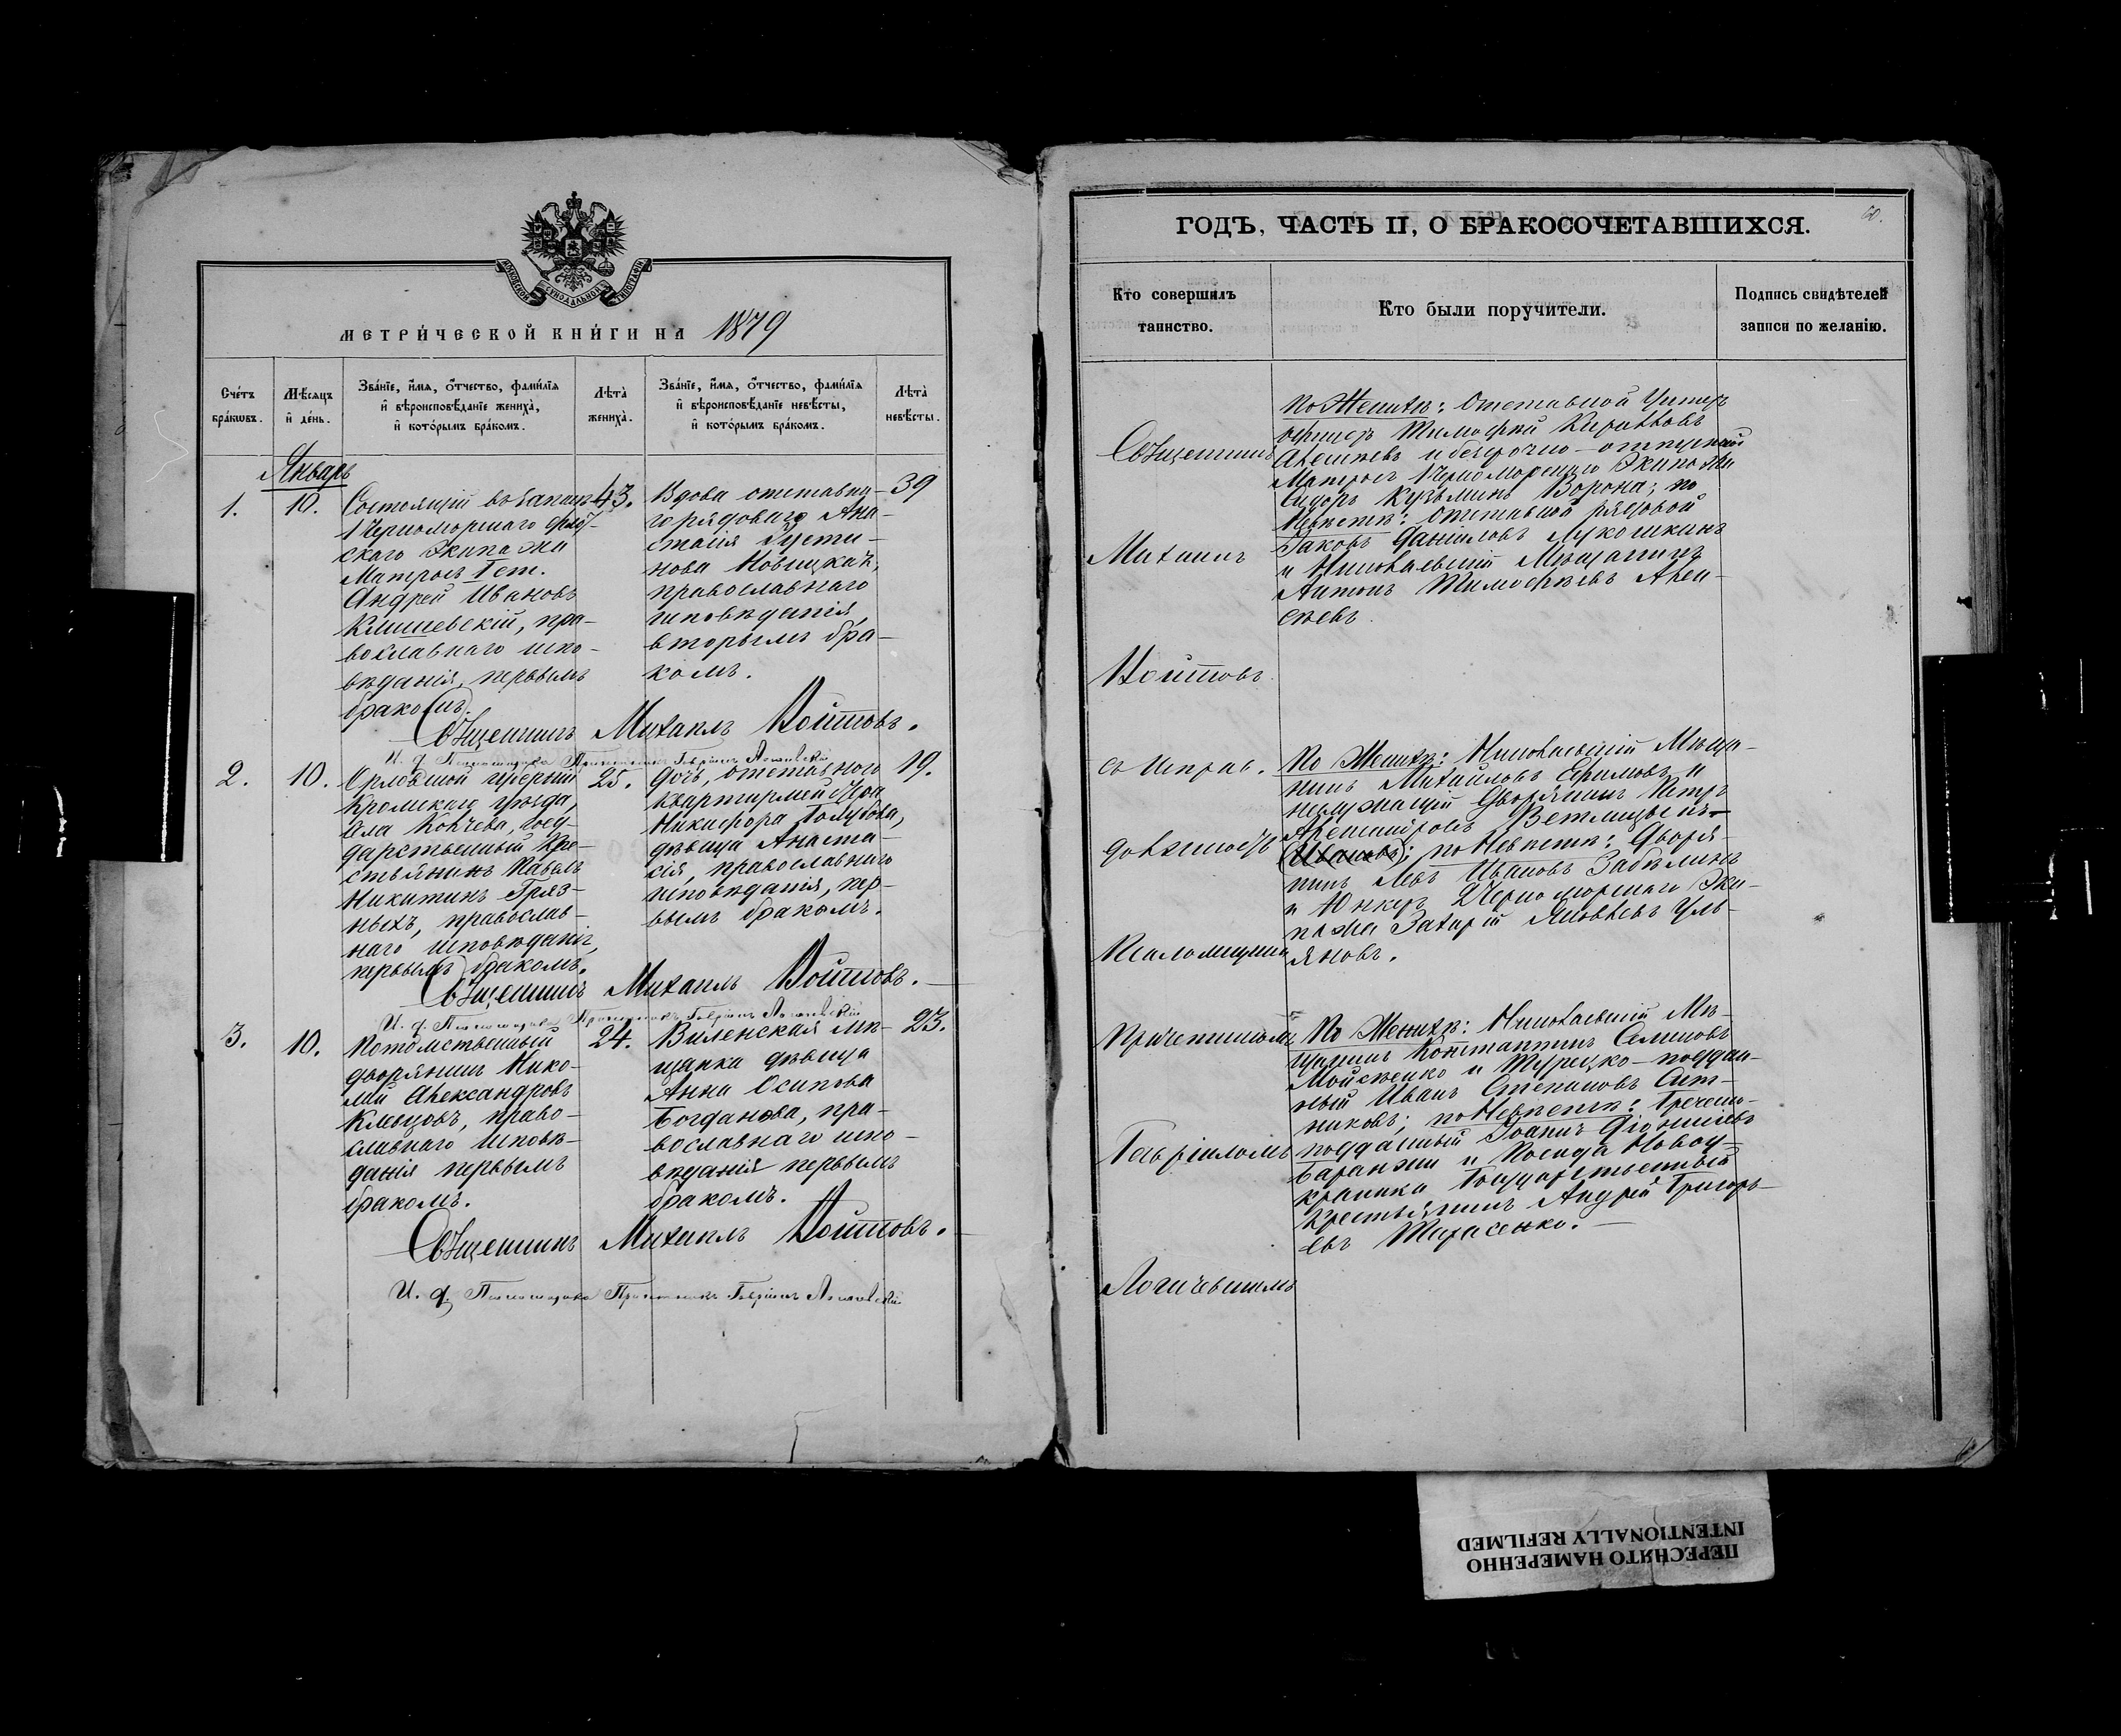 МОСКОВСКОЙ СѴНОДАЛЬНОЙ ТИПОГРАФІИ
МЕТРИ́ЧЕСКОЙ КНИ́ГИ НА 1879
Сче́тъ бра́кωвъ.
Мѣ́сяцъ и҆ де́нь.
Зва́нїе, и҆́мя, ѻ҆́тчество, фами́лїя и҆ вѣроисповѣ́данїе жениха̀, и҆ кото́рымъ бра́комъ.
Лѣта̀ жениха̀.
Зва́нїе, и҆́мя, ѻ҆́тчество, фами́лїя и҆ вѣроисповѣ́данїе невѣ́сты, и҆ кото́рымъ бра́комъ.
Лѣта̀ невѣ́сты.
Январь
1.
10.
Состоящій въ
1 Черноморскаго флот-
скаго Экипажа
Матросъ 1 ст.
Андрей Ивановъ
Климевскій, пра-
вославнаго испо-
вѣданія, первымъ
бракомъ.
43.
Вдова отставна-
го рядоваго Ана-
стасія Іусти-
нова Новицкая,
православнаго
исповѣданія,
вторымъ бра-
комъ.
39
Священникъ Михаилъ Войтовъ.
И. д. Псаломщика Причетникъ Гавріилъ
2.
10.
Орловской губерніи
Кромскаго уѣзда,
села Копчева, госу-
дарственный Кре-
стьянинъ Павелъ
Никитинъ Гряз-
ныхъ, православ-
наго исповѣданія,
первымъ бракомъ.
25.
Дочь отставного
Квартирмейстера
Никифора Голубова,
дѣвица Анаста-
сія, православнаго
исповѣданія, пер-
вымъ бракомъ.
19.
Священникъ Михаилъ Войтовъ.
И. д. Псаломщика Причетникъ Гавріилъ
3.
10.
Потомственный
дворянинъ Нико-
лай Александровъ
Клевцовъ, право-
славнаго исповѣ-
данія первымъ
бракомъ.
24.
Виленская мѣ-
щанка дѣвица
Анна Осипова
Богданова, пра-
вославнаго испо-
вѣданія первымъ
бракомъ.
23.
Священникъ Михаилъ Войтовъ.
И. д. Псаломщика Причетникъ Гавріилъ
60.
ГОДЪ, ЧАСТЬ II, О БРАКОСОЧЕТАВШИХСЯ.
Кто совершилъ таинство.
Кто были поручители.
Подпись свидѣтелей записи по желанію.
Священникъ
Михаилъ
Войтовъ
съ исправ.
должность
Псаломщика
Причетникомъ
Гавріиломъ
По Женихѣ: Отставной Унтеръ
офицеръ Тимофей Кирилловъ
Алексѣевъ и безсрочно-отпускной
Матросъ 1 Черноморскаго Экипажа
Сидоръ Кузьминъ Ворона; по
Невѣстѣ: отставной рядовой
Іаковъ Даніиловъ Лукошкинъ
и Николаевскій Мѣщанинъ
Антонъ Тимофеевъ Алек-
сѣевъ.
По Женихѣ: Николаевскій Мѣща-
нинъ Михайловъ Ефимовъ и
неслужащій Дворянинъ Петръ
Александровъ
по Невѣстѣ: Дворя-
нинъ Левъ Ивановъ Забѣлинъ
и Юнкеръ 2 Черноморскаго Эки-
пажа Захарій Яковлевъ Уль-
яновъ.
По Женихѣ: Николаевскій Мѣ-
щанинъ Константинъ Семеновъ
Мойсѣенко и Турецко-поддан-
ный Иванъ Степановъ Сит-
никовъ; по Невѣстѣ: Греческо-
подданный Іоаннъ Діонисіевъ
Баранжи и Посада
Государственный
Крестьянинъ Андрей Григорь-
евъ Тарасенко.
ПЕРЕСНЯТО НАМЕРЕННО
INTENTIONALLY REFILMED